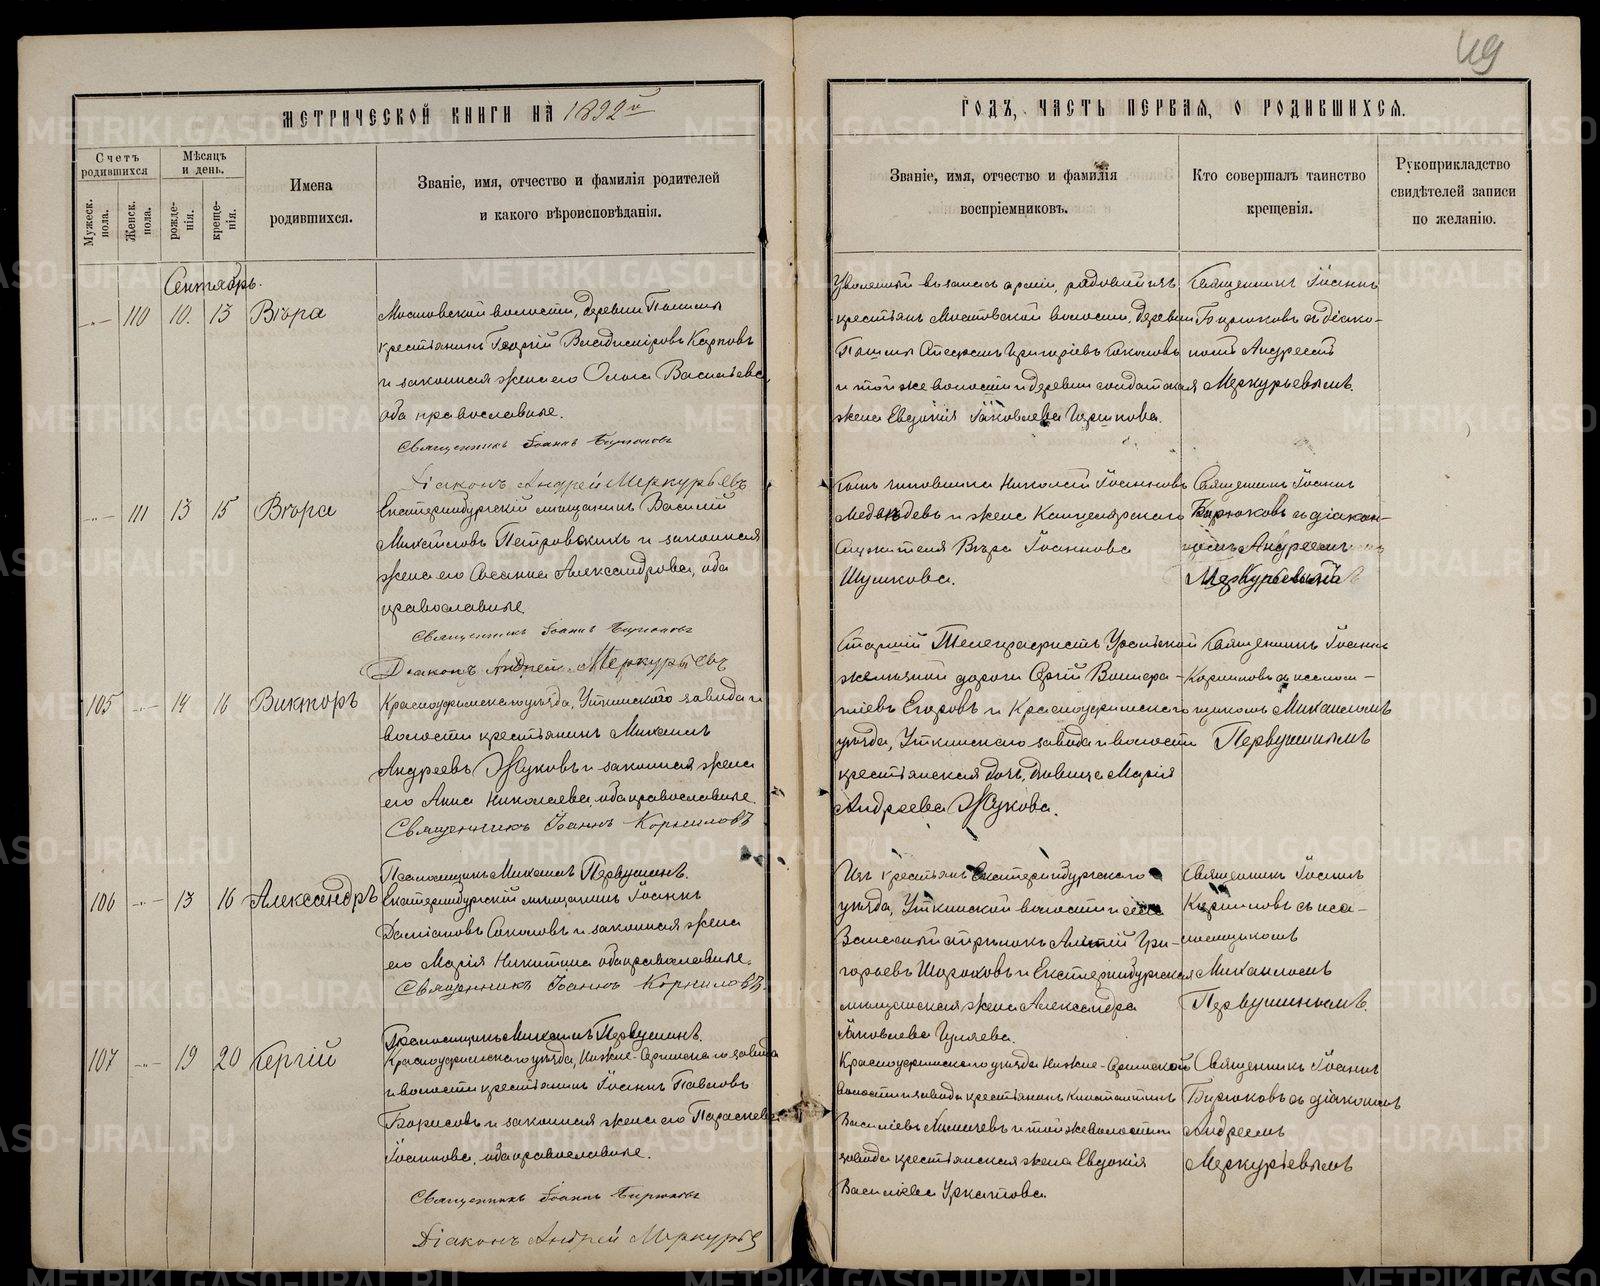 49
МЕТРИЧЕСКОЙ КНИГИ НА 1892й
ГОДЪ, ЧАСТЬ ПЕРВАЯ, О РОДИВШИХСЯ.
Счетъ родившихся
Мужеск. пола.
Женск. пола.
Мѣсяцъ и день.
рожде-нія.
креще-нія.
Имена
родившихся.
Званіе, имя, отчество и фамилія родителей
и какого вѣроисповѣданія.
Званіе, имя, отчество и фамилія
воспріемниковъ.
Кто совершалъ таинство
крещенія.
Рукоприкладство
свидѣтелей записи
по желанію.
Сентябрь.
110 10. 13 Вѣра
Мостовской волости, деревни
крестьянинъ Георгій Владиміровъ Карповъ
и законная жена его Ольга Васильева,
оба православные.
Священникъ Іоаннъ Бирюковъ
Діаконъ Андрей Меркурьевъ
Уволенный въ запасъ арміи, рядовой изъ
крестьянъ Мостовской волости, деревни
Григоріевъ Соколовъ
и той же волости и деревни солдатская
жена Евдокія Іаковлева
Священникъ Іоаннъ
Бирюковъ съ діако-
номъ Андреемъ
Меркурьевымъ.
111 13 15 Вѣра
Екатеринбургскій мѣщанинъ Василій
Михаиловъ Петровскихъ и законная
жена его Александрова, оба
православные
Священникъ Іоаннъ Бирюковъ
Діаконъ Андрей Меркурьевъ
Сынъ чиновника Николай Іоанновъ
Медвѣдевъ и жена Канцелярскаго
служителя Вѣра Іоаннова
Священникъ Іоаннъ
Бирюковъ съ діакон-
номъ Андреемъ
Меркурьевымъ
105 14 16 Викторъ
Красноуфимскаго уѣзда, Уткинскаго завода и
волости крестьянинъ Михаилъ
Андреевъ Жуковъ и законная жена
его Анна Николаева, оба православные.
Священникъ Іоаннъ Корниловъ
Псаломщикъ Михаилъ Первушинъ.
Старшій Телеграфистъ Уральской
желѣзной дороги Сергій
Егоровъ и Красноуфимскаго
уѣзда, Уткинскаго завода и волости
крестьянская дочь, дѣвица Марія
Андреева Жукова.
Священникъ Іоаннъ
Корниловъ съ псалом-
щикомъ Михаиломъ
Первушинымъ
106 13 16 Александръ
Екатеринбургскій мѣщанинъ Іоаннъ
Даміановъ Соколовъ и законная жена
его Марія Никитина оба православные.
Священникъ Іоаннъ Корниловъ.
Псаломщикъ Михаилъ Первушинъ.
Изъ крестьянъ Екатеринбургскаго
уѣзда, Уткинской волости и села
Запасный стрѣлокъ Гри-
горьевъ Шороховъ и Екатеринбургская
мѣщанская жена Александра
Іаковлева Гуляева.
Священникъ Іоаннъ
Корниловъ съ пса-
ломщикомъ
Михаиломъ
Первушинымъ.
107 19 20 Сергій
Красноуфимскаго уѣзда, Нижне-Сергинскаго завода
и волости крестьянинъ Іоаннъ Павловъ
Борисовъ и законная жена его Параскева
Іоаннова, оба православные.
Священникъ Іоаннъ Бирюковъ
Діаконъ Андрей Меркурьев
Красноуфимскаго уѣзда Нижне-Сергинской
волости и завода крестьянинъ Константинъ
Василіевъ и той же волости и
завода крестьянская жена Евдокія
Василіева
Священникъ Іоаннъ
Бирюковъ съ діакономъ
Андреемъ
Меркурьевымъ
METRIKI.GASO-URAL.RU